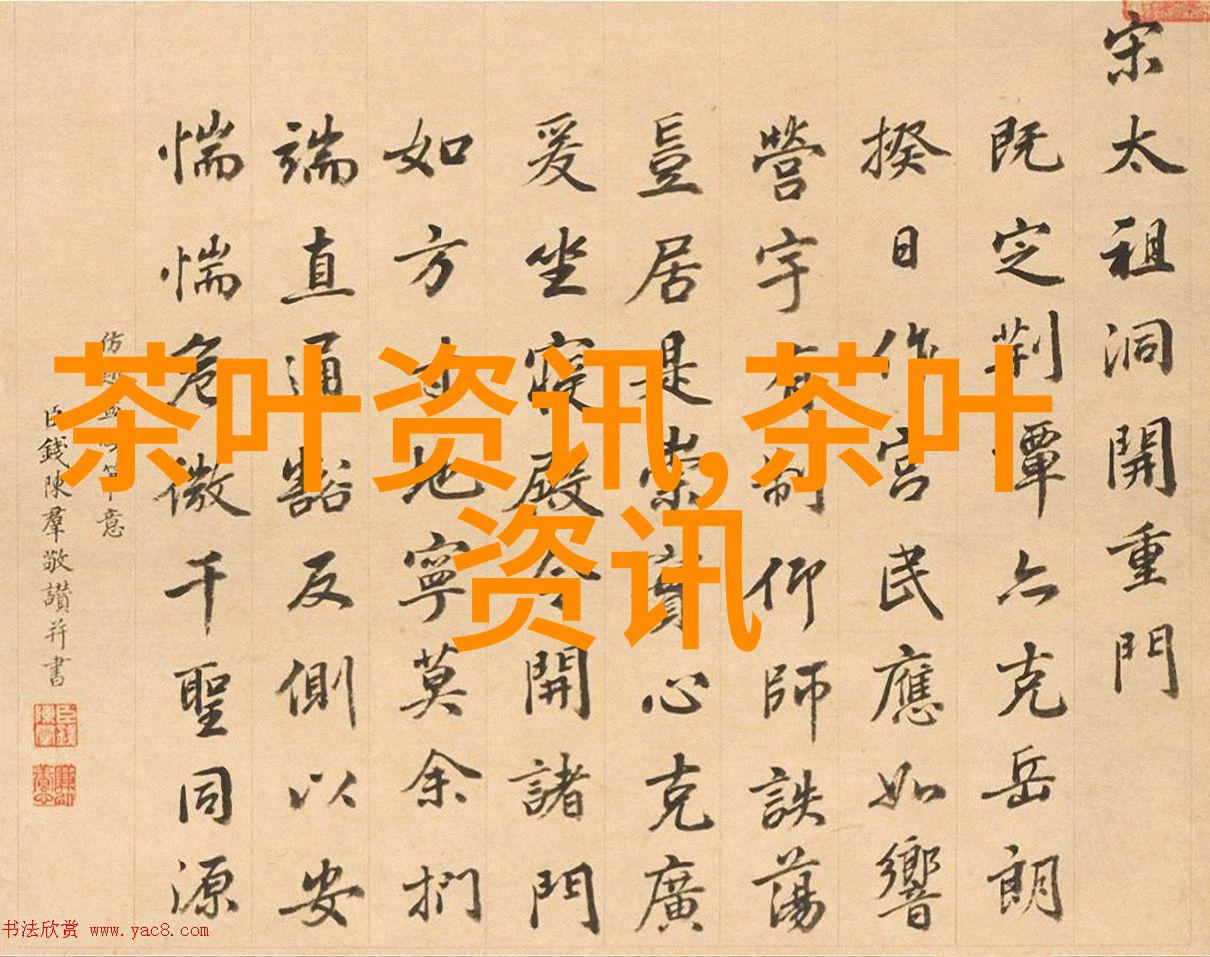 茶叶资讯,茶叶
资讯
宋太祖洞開重門
既定荆覃克岳朗
揆日作宮民應如響
營宇有制仰師詄蕩
豈居是崇實心克廣
爰坐寢殿令開諸門
如方寸地寧莫余捫
端直通豁反側以安
惴惴危微千聖同源
仿意
臣錢陳羣敬讚并書
书法欣赏 www.yac8.com